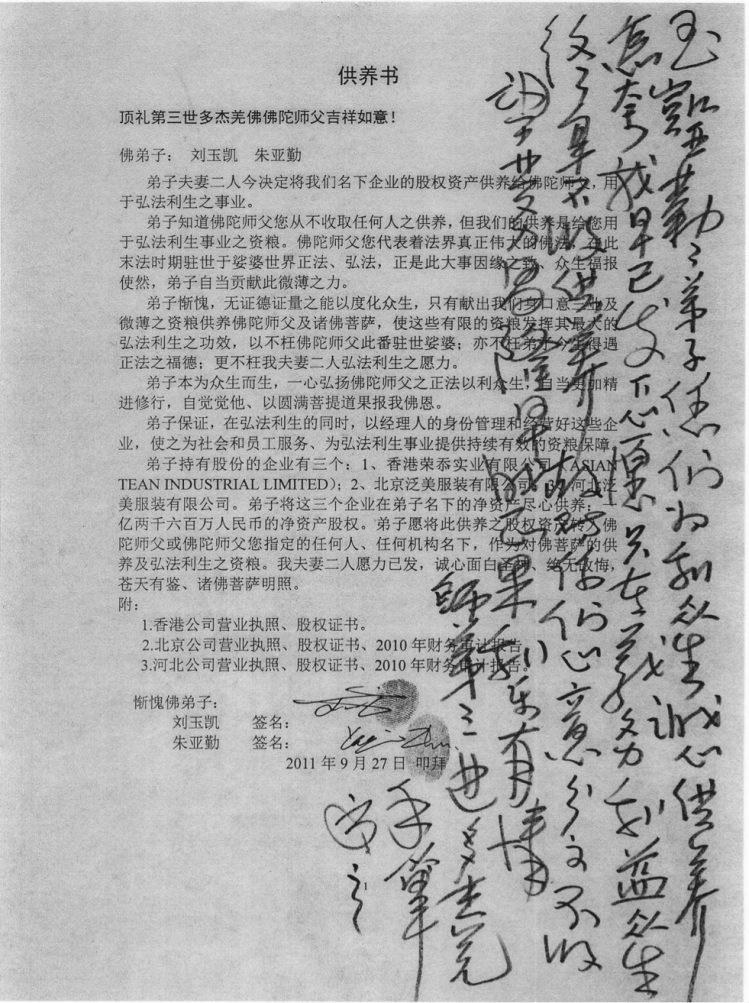 供养书
顶礼第三世多杰羌佛佛陀师父吉祥如意！
佛弟子： 刘玉凯 朱亚勤
弟子夫妻二人今决定将我们名下企业的股权资产供养给佛陀师父，用
于弘法利生之事业。
弟子知道佛陀师父您从不收取任何人之供养，但我们的供养是给您用
于弘法利生事业之资粮。佛陀师父您代表着法界真正伟大的佛法，在此
末法时期驻世于娑婆世界正法、弘法，正是此大事因缘之致、众生福报
使然，弟子自当贡献此微薄之力。
弟子惭愧，无证德证量之能以度化众生，只有献出我们身口意三业及
微薄之资粮供养佛陀师父及诸佛菩萨，使这些有限的资粮发挥其最大的
弘法利生之功效，以不枉佛陀师父此番驻世娑婆；亦不枉弟子今生得遇
正法之福德；更不枉我夫妻二人弘法利生之愿力。
弟子本为众生而生，一心弘扬佛陀师父之正法以利众生，自当更加精
进修行，自觉觉他、以圆满菩提道果报我佛恩。
弟子保证，在弘法利生的同时，以经理人的身份管理和经营好这些企
业，使之为社会和员工服务、为弘法利生事业提供持续有效的资粮保障。
弟子持有股份的企业有三个：1、香港荣忝实业有限公司（ASIAN
TEAN INDUSTRIAL LIMITED）；2、北京泛美服装有限公司；3、河北泛
美服装有限公司。弟子将这三个企业在弟子名下的净资产尽心供养，一
亿两千六百万人民币的净资产股权。弟子愿将此供养之股权资产转入佛
陀师父或佛陀师父您指定的任何人、任何机构名下，作为对佛菩萨的供
养及弘法利生之资粮。我夫妻二人愿力已发，诚心面白圣列、绝无改悔，
苍天有鉴、诸佛菩萨明照。
附：
1.香港公司营业执照、股权证书。
2.北京公司营业执照、股权证书、2010 年财务审计报告
3.河北公司营业执照、股权证书、2010 年财务审计报告。
惭愧佛弟子：
刘玉凯 签名：
朱亚勤 签名：
2011 年 9 月 27 日 叩拜
弟子 们为利众生诚心供养
我早已发下心愿只在义务利益众生
不收供养 你们心意分文不收
第三世多杰羌